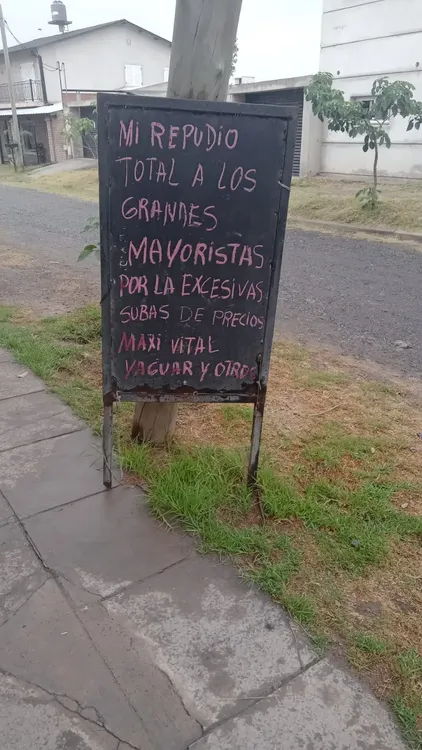 MI REPUDIO
TOTAL A LOS
GRANDES
MAYORISTAS
POR LA EXCESIVAS
SUBAS DE PRECIOS
MAXI VITAL
YAGUAR Y OTROS